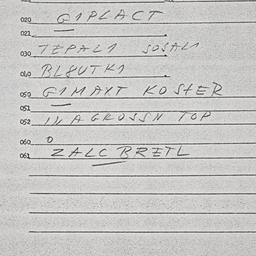 020 G1PLACT
021
030 TEPAL1 SOSAL1
040 BL8UTK1
050 G1MAXT KOSTER
051
052 IN AGROSSN TOP
060 O
061 ZALC BRETL